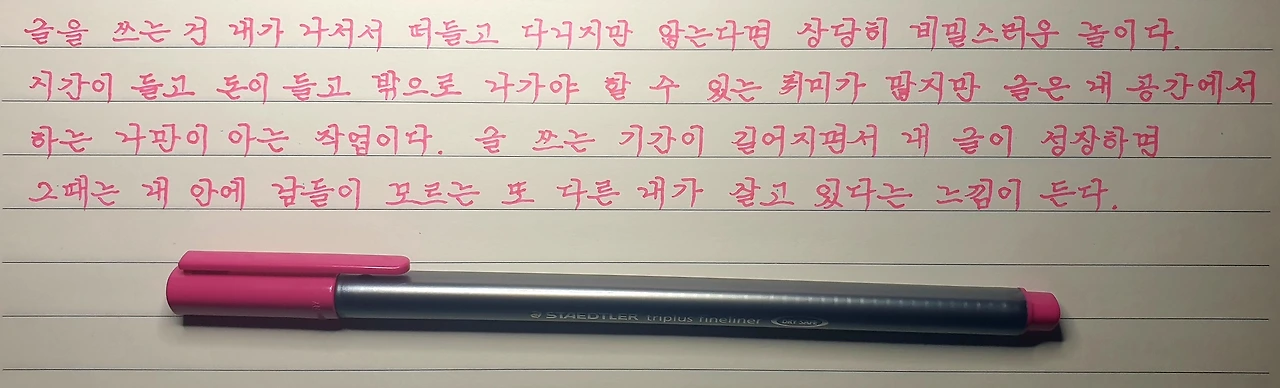 글을 쓰는 건 내가 나서서 떠들고 다니지만 않는다면 상당히 비밀스러운 놀이다.
시간이 들고 돈이 들고 밖으로 나가야 할 수 있는 취미가 많지만 글은 내 공간에서
하는 나만이 아는 작업이다. 글 쓰는 기간이 길어지면서 내 글이 성장하면
그때는 내 안에 남들이 모르는 또 다른 내가 살고 있다는 느낌이 든다.
STAEDTLER triplus fineliner DRY SAFE